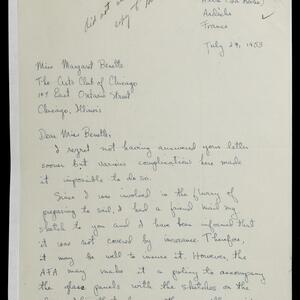 did not
copy of
Ardèche
France
July 29, 1953
Miss Margaret Benette
The Arts Club of Chicago
109 East Ontario Street
Chicago, Illinois
Dear Miss Benette:
I regret not having answered your letter
sooner but various complications here made
it impossible to do so.
Since I was involved in the flurry of
preparing to sail, I had a friend mail my
sketch to you and I have been informed that
it was not covered by insurance. Therefore,
it may be well to insure it. However, the
AFA may make it a policy to accompany
the glass panels with the sketches on the